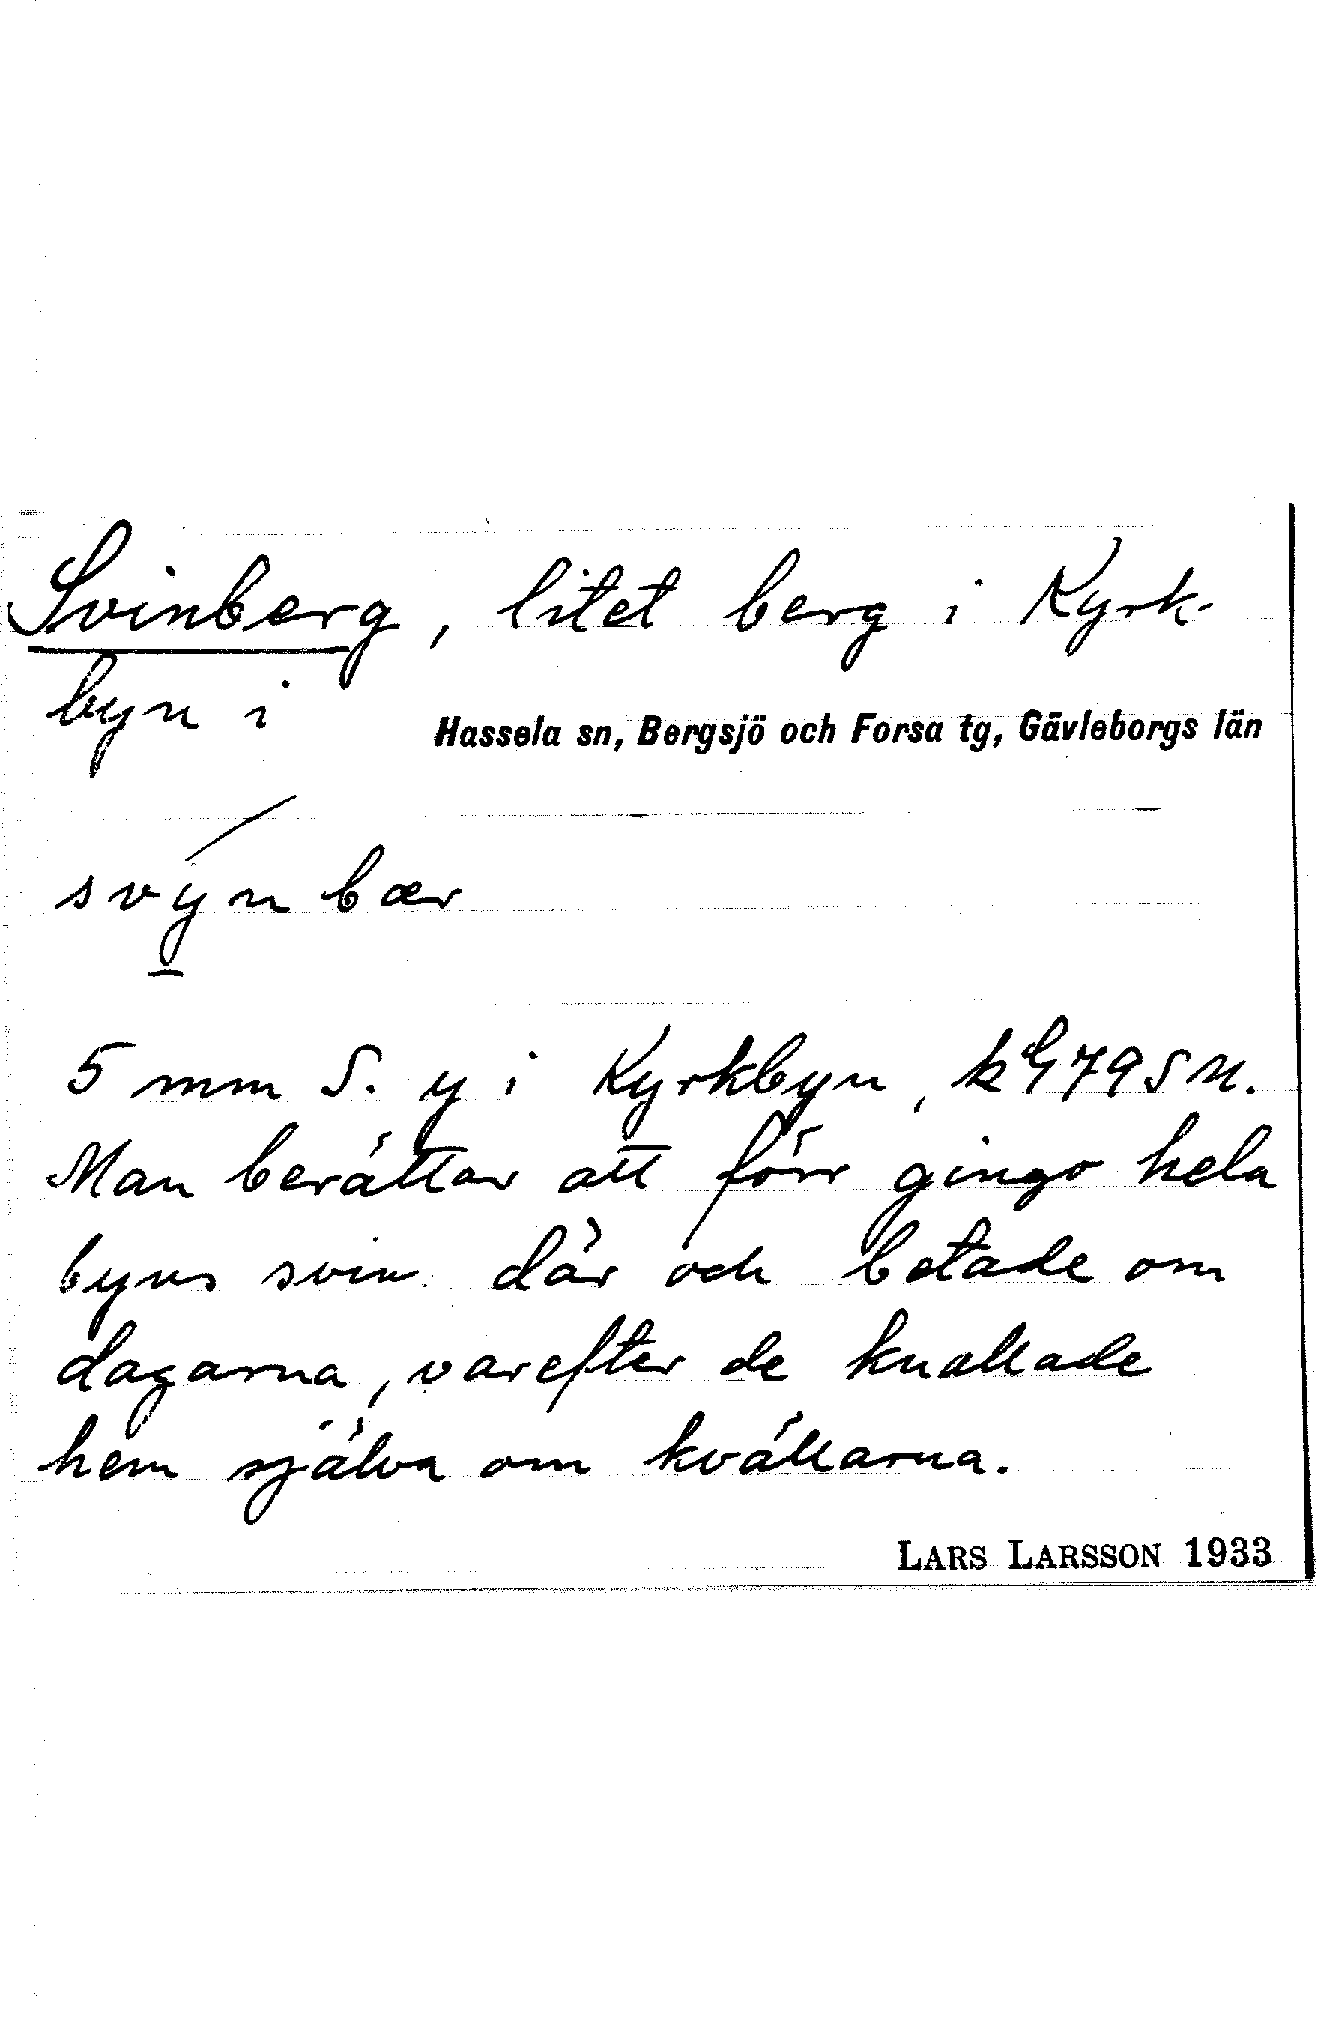 Svinberg, litet berg i Kyrk-
byn i Hassela sn, Bergsjö och Forsa tg, Gävleborgs län
svýnbær
5 mm S. y i Kyrkbyn, 795 N.
Man berättar att förr gingo hela
byns svin där och betade om
dagarna, varefter de knallade
hem själva om kvällarna.
LARS LARSSON 1933